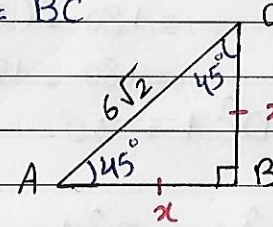 = BC
C
6√2
45°
A
45°
B
x